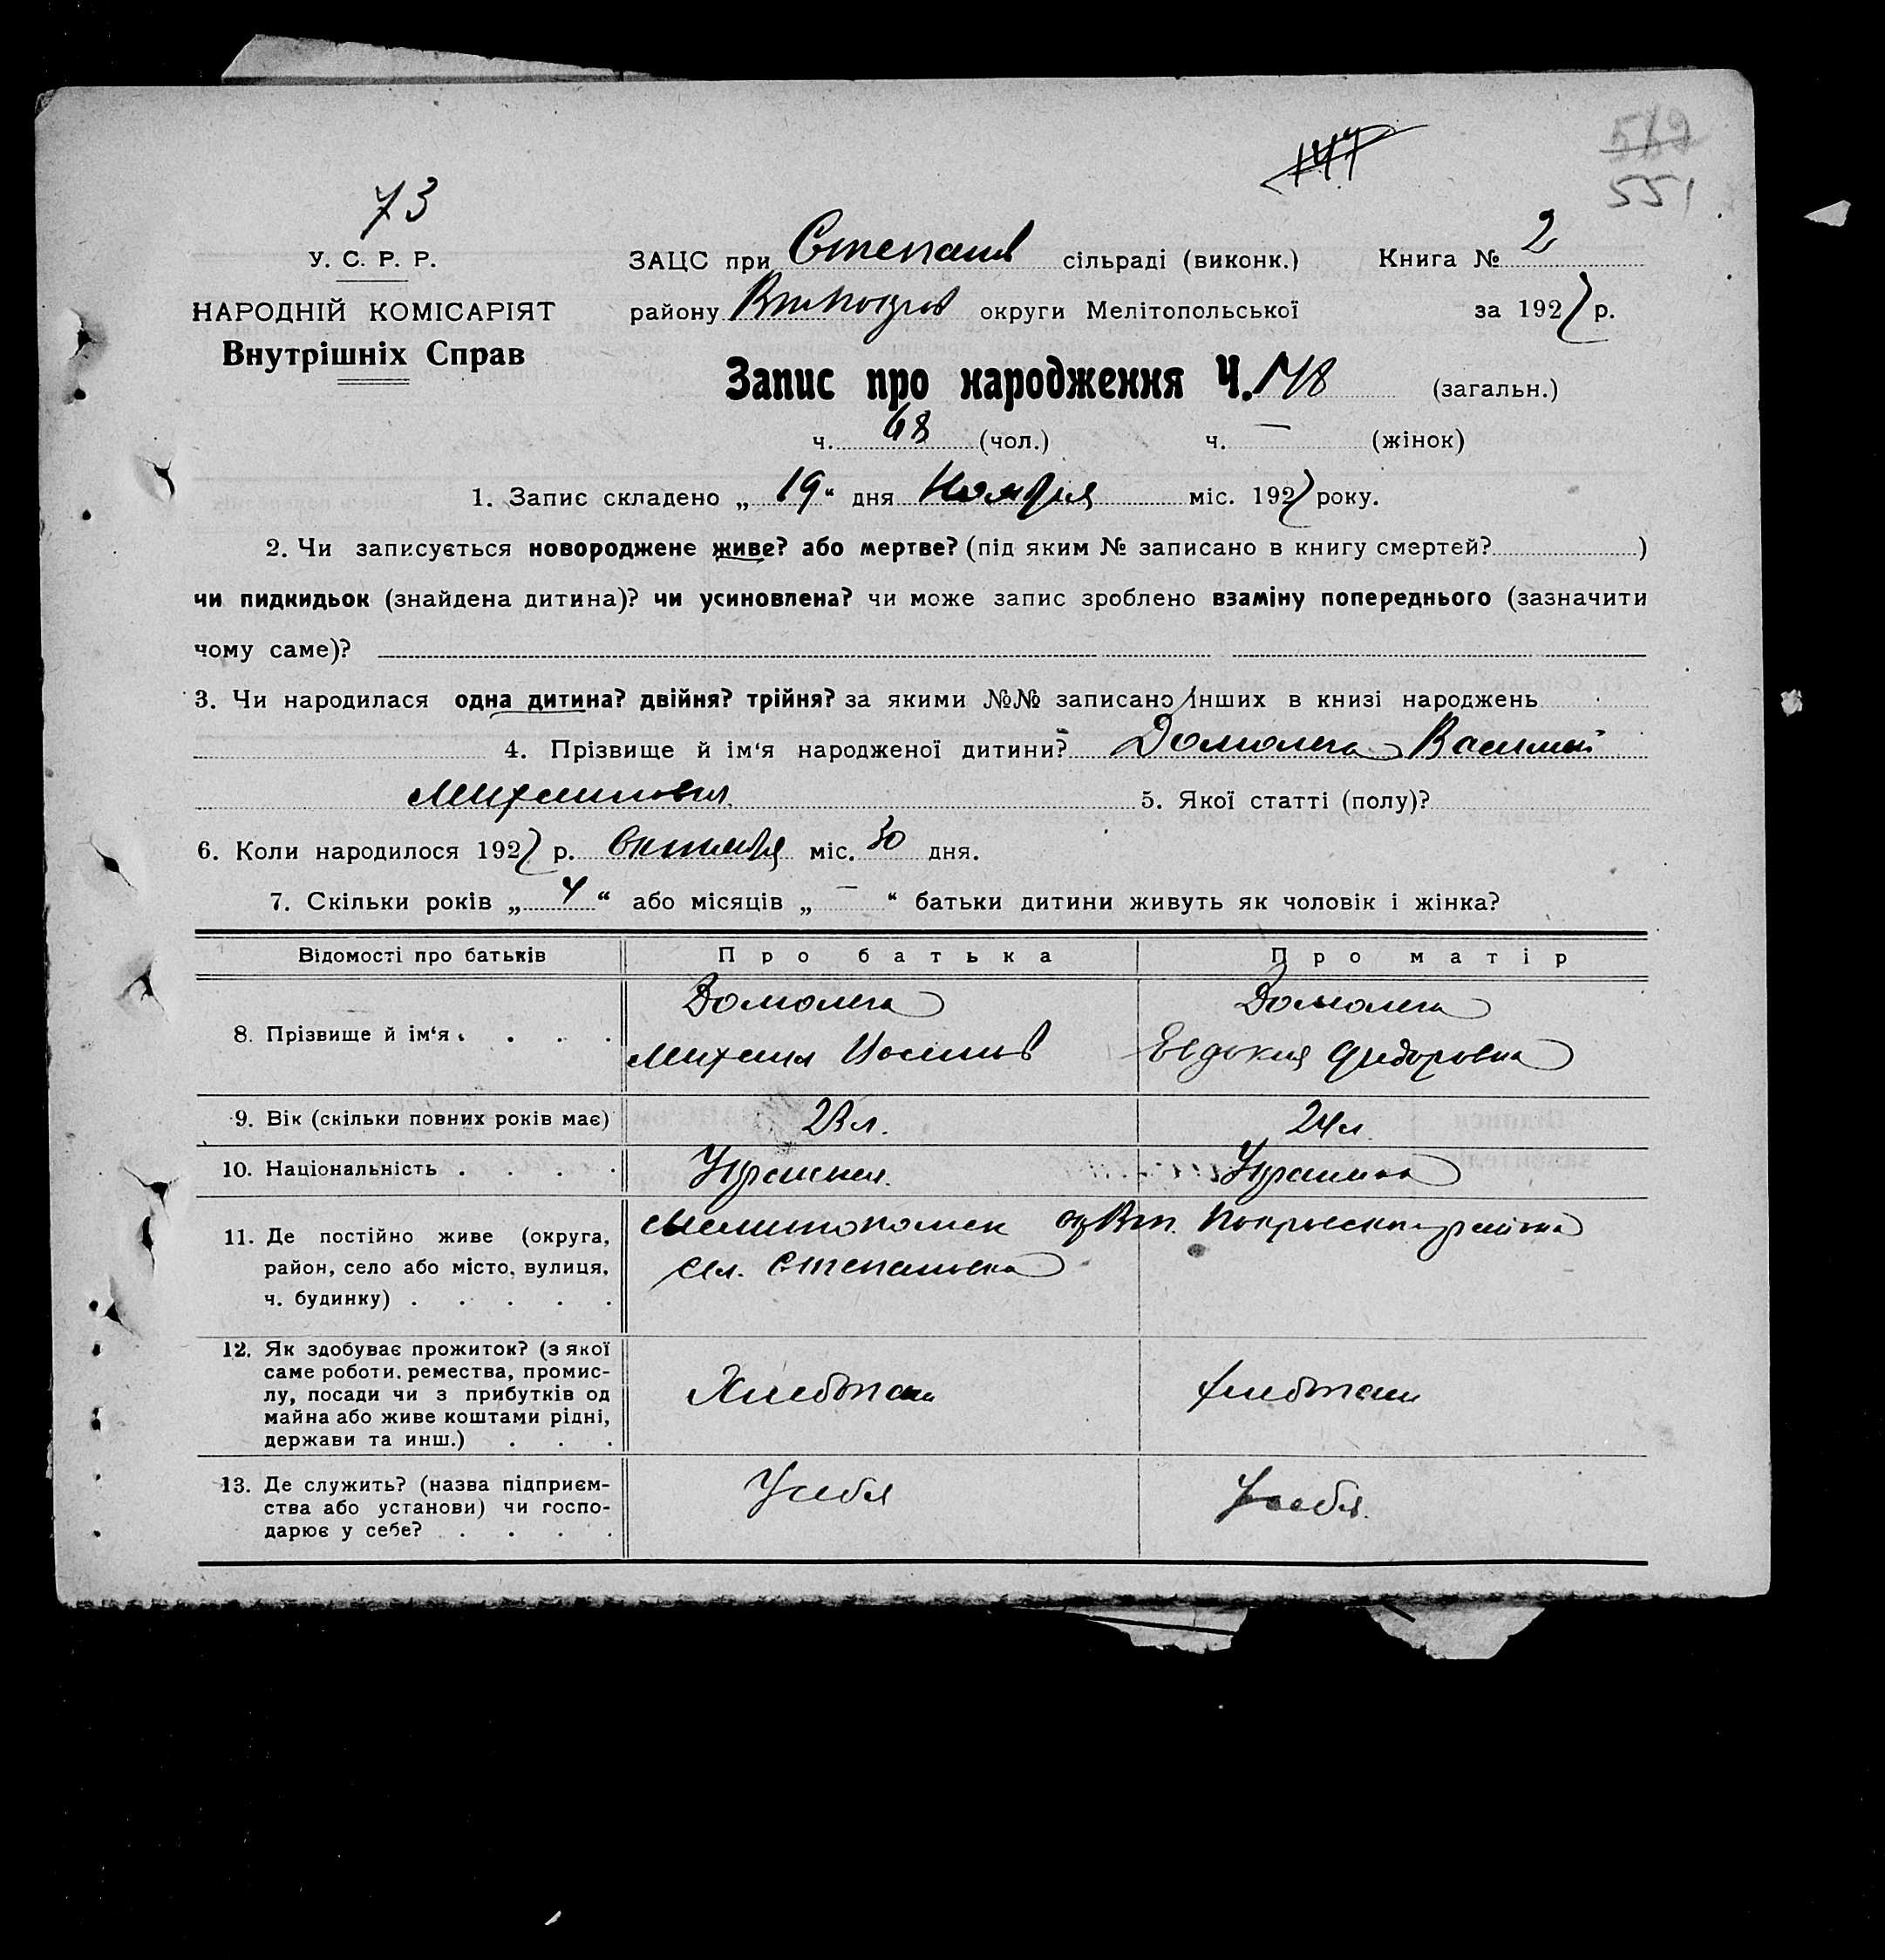 569
147
551
73
У. С. Р. Р.
НАРОДНІЙ КОМІСАРІЯТ
Внутрішніх Справ
ЗАЦС при Степанів сільраді (виконк.) Книга № 2
району округи Мелітопольської за 1927 р.
Запис про народження Ч. 148 (загальн.)
ч. 68 (чол.) ч. — (жінок)
1. Запис складено „ 19 “ дня Ноября міс. 1927 року.
2. Чи записується новороджене живе? або мертве? (під яким № записано в книгу смертей? )
чи пидкидьок (знайдена дитина)? чи усиновлена? чи може запис зроблено взаміну попереднього (зазначити
чому саме)?
3. Чи народилася одна дитина? двійня? трійня? за якими №№ записано інших в книзі народжень
4. Прізвище й ім‘я народженої дитини? Домолега Василий
Михаилович 5. Якої статті (полу)?
6. Коли народилося 1927 р. Октября міс. 30 дня.
7. Скільки років „ 4 “ або місяців „ — “ батьки дитини живуть як чоловік і жінка?
Відомості про батьків Про батька Про матір
8. Прізвище й ім‘я . . . . Домолега Домолега
Михаил Иосипов Евдокия Федоровна
9. Вік (скільки повних років має) 23 л. 24 л
10. Національність . . . . Украинец. Украинка
11. Де постійно живе (округа, район, село або місто, вулиця, ч. будинку) . . . . . Мелитопольск окр Вт. Покровского района
сел. Степановка
12. Як здобуває прожиток? (з якої саме роботи. ремества, промислу, посади чи з прибутків од майна або живе коштами рідні, держави та инш.) . . . Хлебопаш хлебопаш
13. Де служить? (назва підприємства або установи) чи господарює у себе? . . . . У себя У себя.